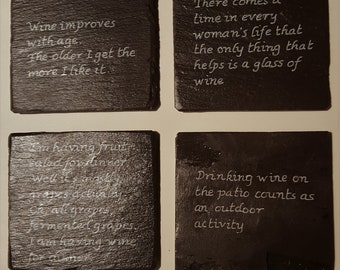 Wine improves
with age.
The older I get the
more I like it
There comes a
time in every
woman's life that
the only thing that
helps is a glass of
wine
I'm having fruit
salad for dinner.
Well it's mostly
grapes actually.
Ok all grapes,
fermented grapes.
I am having wine
for dinner.
Drinking wine on
the patio counts as
an outdoor
activity